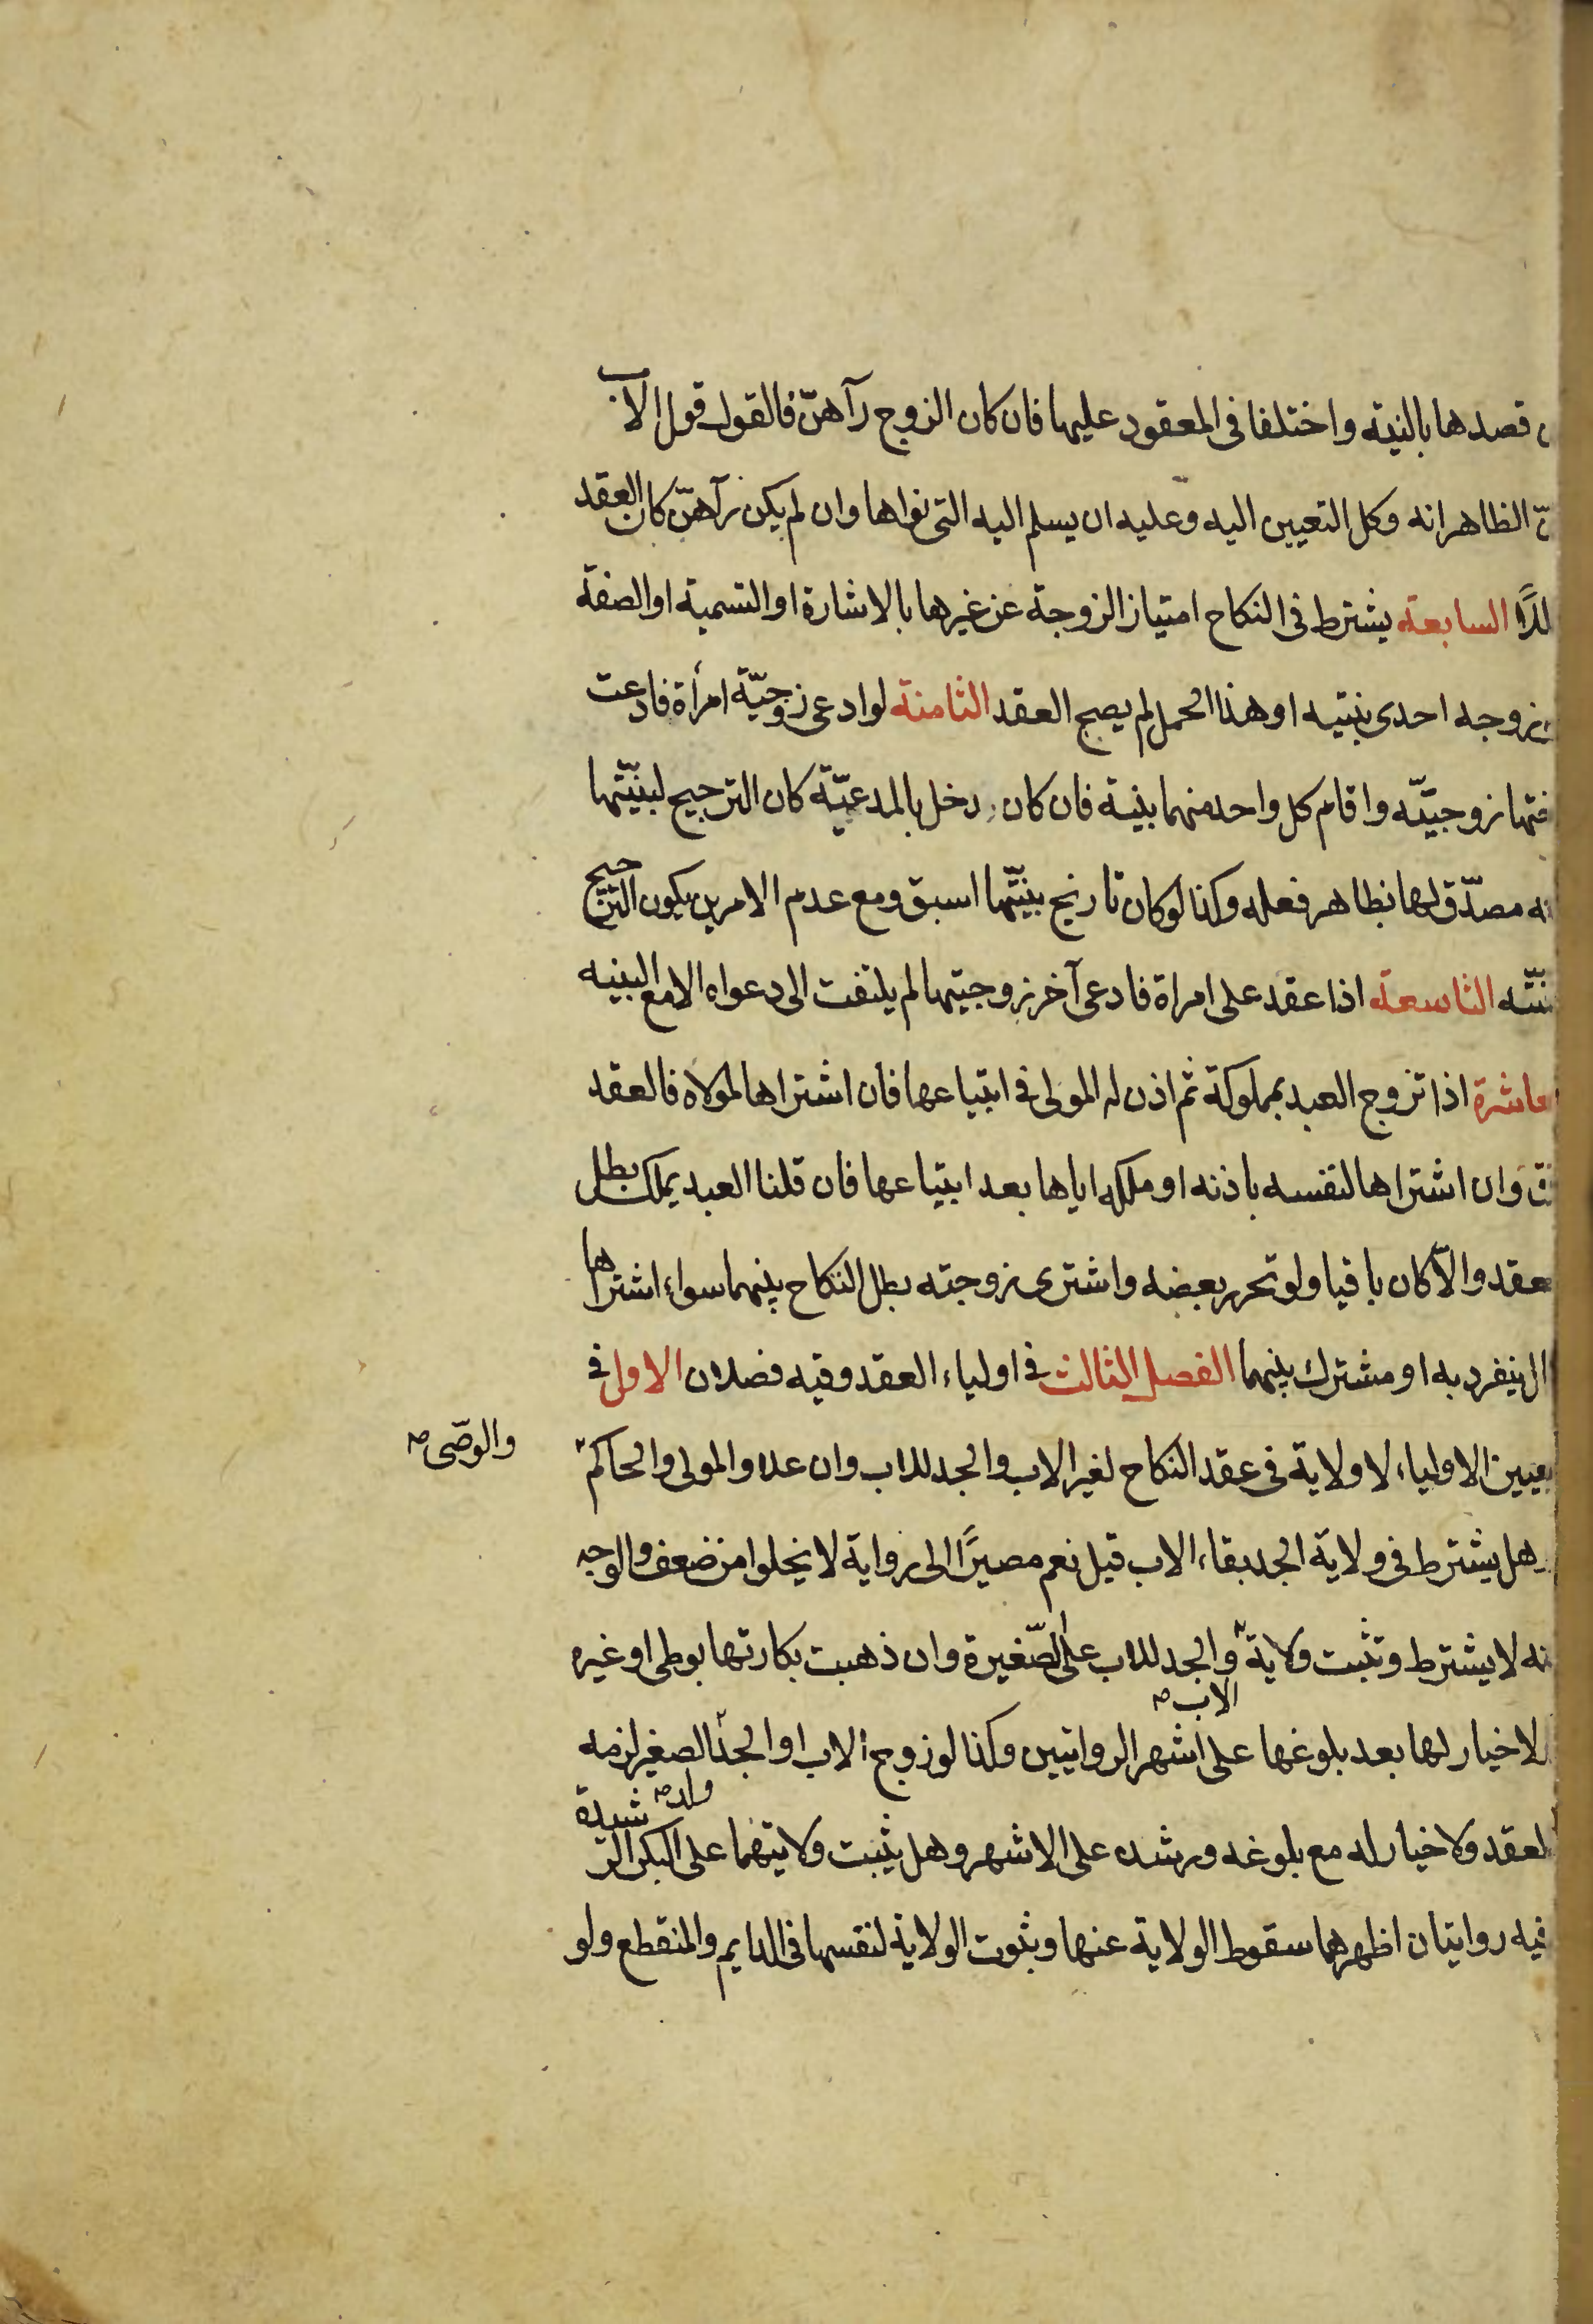 قصدها بالنية واختلفا فى المعقود عليها فان كان الزوج رآهنّ فالقول قول الاب
الظاهر انه وكل التعيين اليه وعليه ان يسلم اليه التى نواها وان لم يكن رآهنّ كان العقد
السابعة يشترط فى النكاح امتياز الزوجة عن غيرها بالاشارة او التسمية او الصفة
زوجه احدى بنتيه او هذا الحمل لم يصح العقد الثامنة لو ادعى زوجيّة امرأة فادعت
ختها زوجيّته واقام كل واحد منهما بينة فان كان دخل بالمدعيّة كان الترجيح لبينتّها
نه مصدّق لها بظاهر فعله وكذا لو كان تاريخ بينتّها اسبق ومع عدم الامرين يكون الترجيح
ينتّه التاسعة اذا عقد على امراة فادعى آخر زوجيتها لم يلتفت الى دعواه الا مع البينه
عاشرة اذا تزوج العبد بمملوكة ثم اذن له المولى فى ابتياعها فان اشتراها لمولاه فالعقد
وان اشتراها لنفسه باذنه او ملكه اياها بعد ابتياعها فان قلنا العبد يملك بطل
عقد والّا كان باقيا ولو تحرر بعضه واشترى زوجته بطل النكاح بينهما سواء اشتراها
ال ينفرد به او مشترك بينهما الفصل الثالث فى اولياء العقد وفيه فصلان الاول فى
تعيين الاولياء لا ولاية فى عقد النكاح لغير الاب والجد للاب وان علا والمولى والحاكم
والوصّى صح
هل يشترط فى ولاية الجد بقاء الاب قيل نعم مصيرًا الى رواية لا يخلوا من ضعف والوجه
نه لا يشترط وتثبت ولاية والجد للاب على الصّغيرة وان ذهبت بكارتها بوطى او غيره
الاب صح
لا خيار لها بعد بلوغها على اشهر الروايتين وكذا لو زوج الاب او الجد الصغير لزمه
ولده صح
لعقد ولا خيار له مع بلوغه ورشده على الاشهر وهل يثبت ولايتهما على البكر الرشيدة
فيه روايتان اظهرهما سقوط الولاية عنها وثبوت الولاية لنفسها فى الدايم والمنقطع ولو